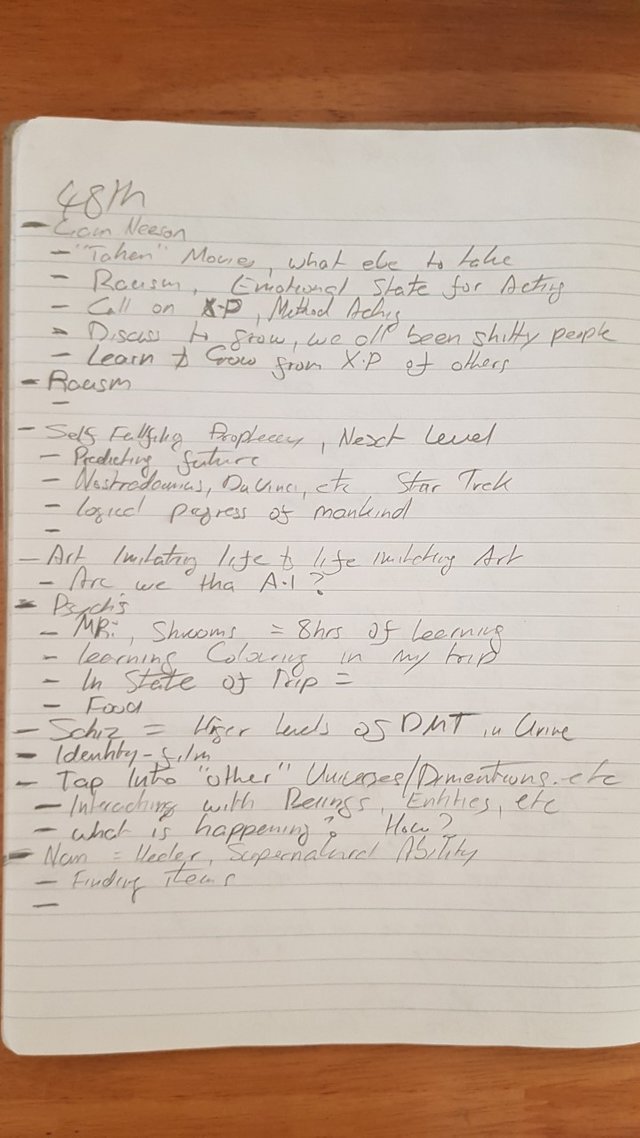 48th
- Liam Neeson
- "Taken" Movies, what else to take
- Racism, Emotional State for Acting
- Call on X-P, Method Acting
- Discuss to grow, we all been shitty people
- Learn & Grow from X.P of others
- Racism
-
- Self Fulfiling Prophecy, Next Level
- Predicting future
- Nostrodamus, DaVinci, etc Star Trek
- logical progress of mankind
-
- Art Imitating life & life imitating Art
- Are we tha A.I?
- Psych's
- MRi, Shrooms = 8hrs of learning
- learning Colouring in my trip
- In State of Trip =
- Food
- Schiz = Higer levels of DMT in Urine
- Identity - film
- Tap Into "other" Universes/Dimentions. etc
- Interacting with Beings, Entities, etc
- what is happening? How?
- Nan = Healer, Supernatural Ability
- Finding items
-